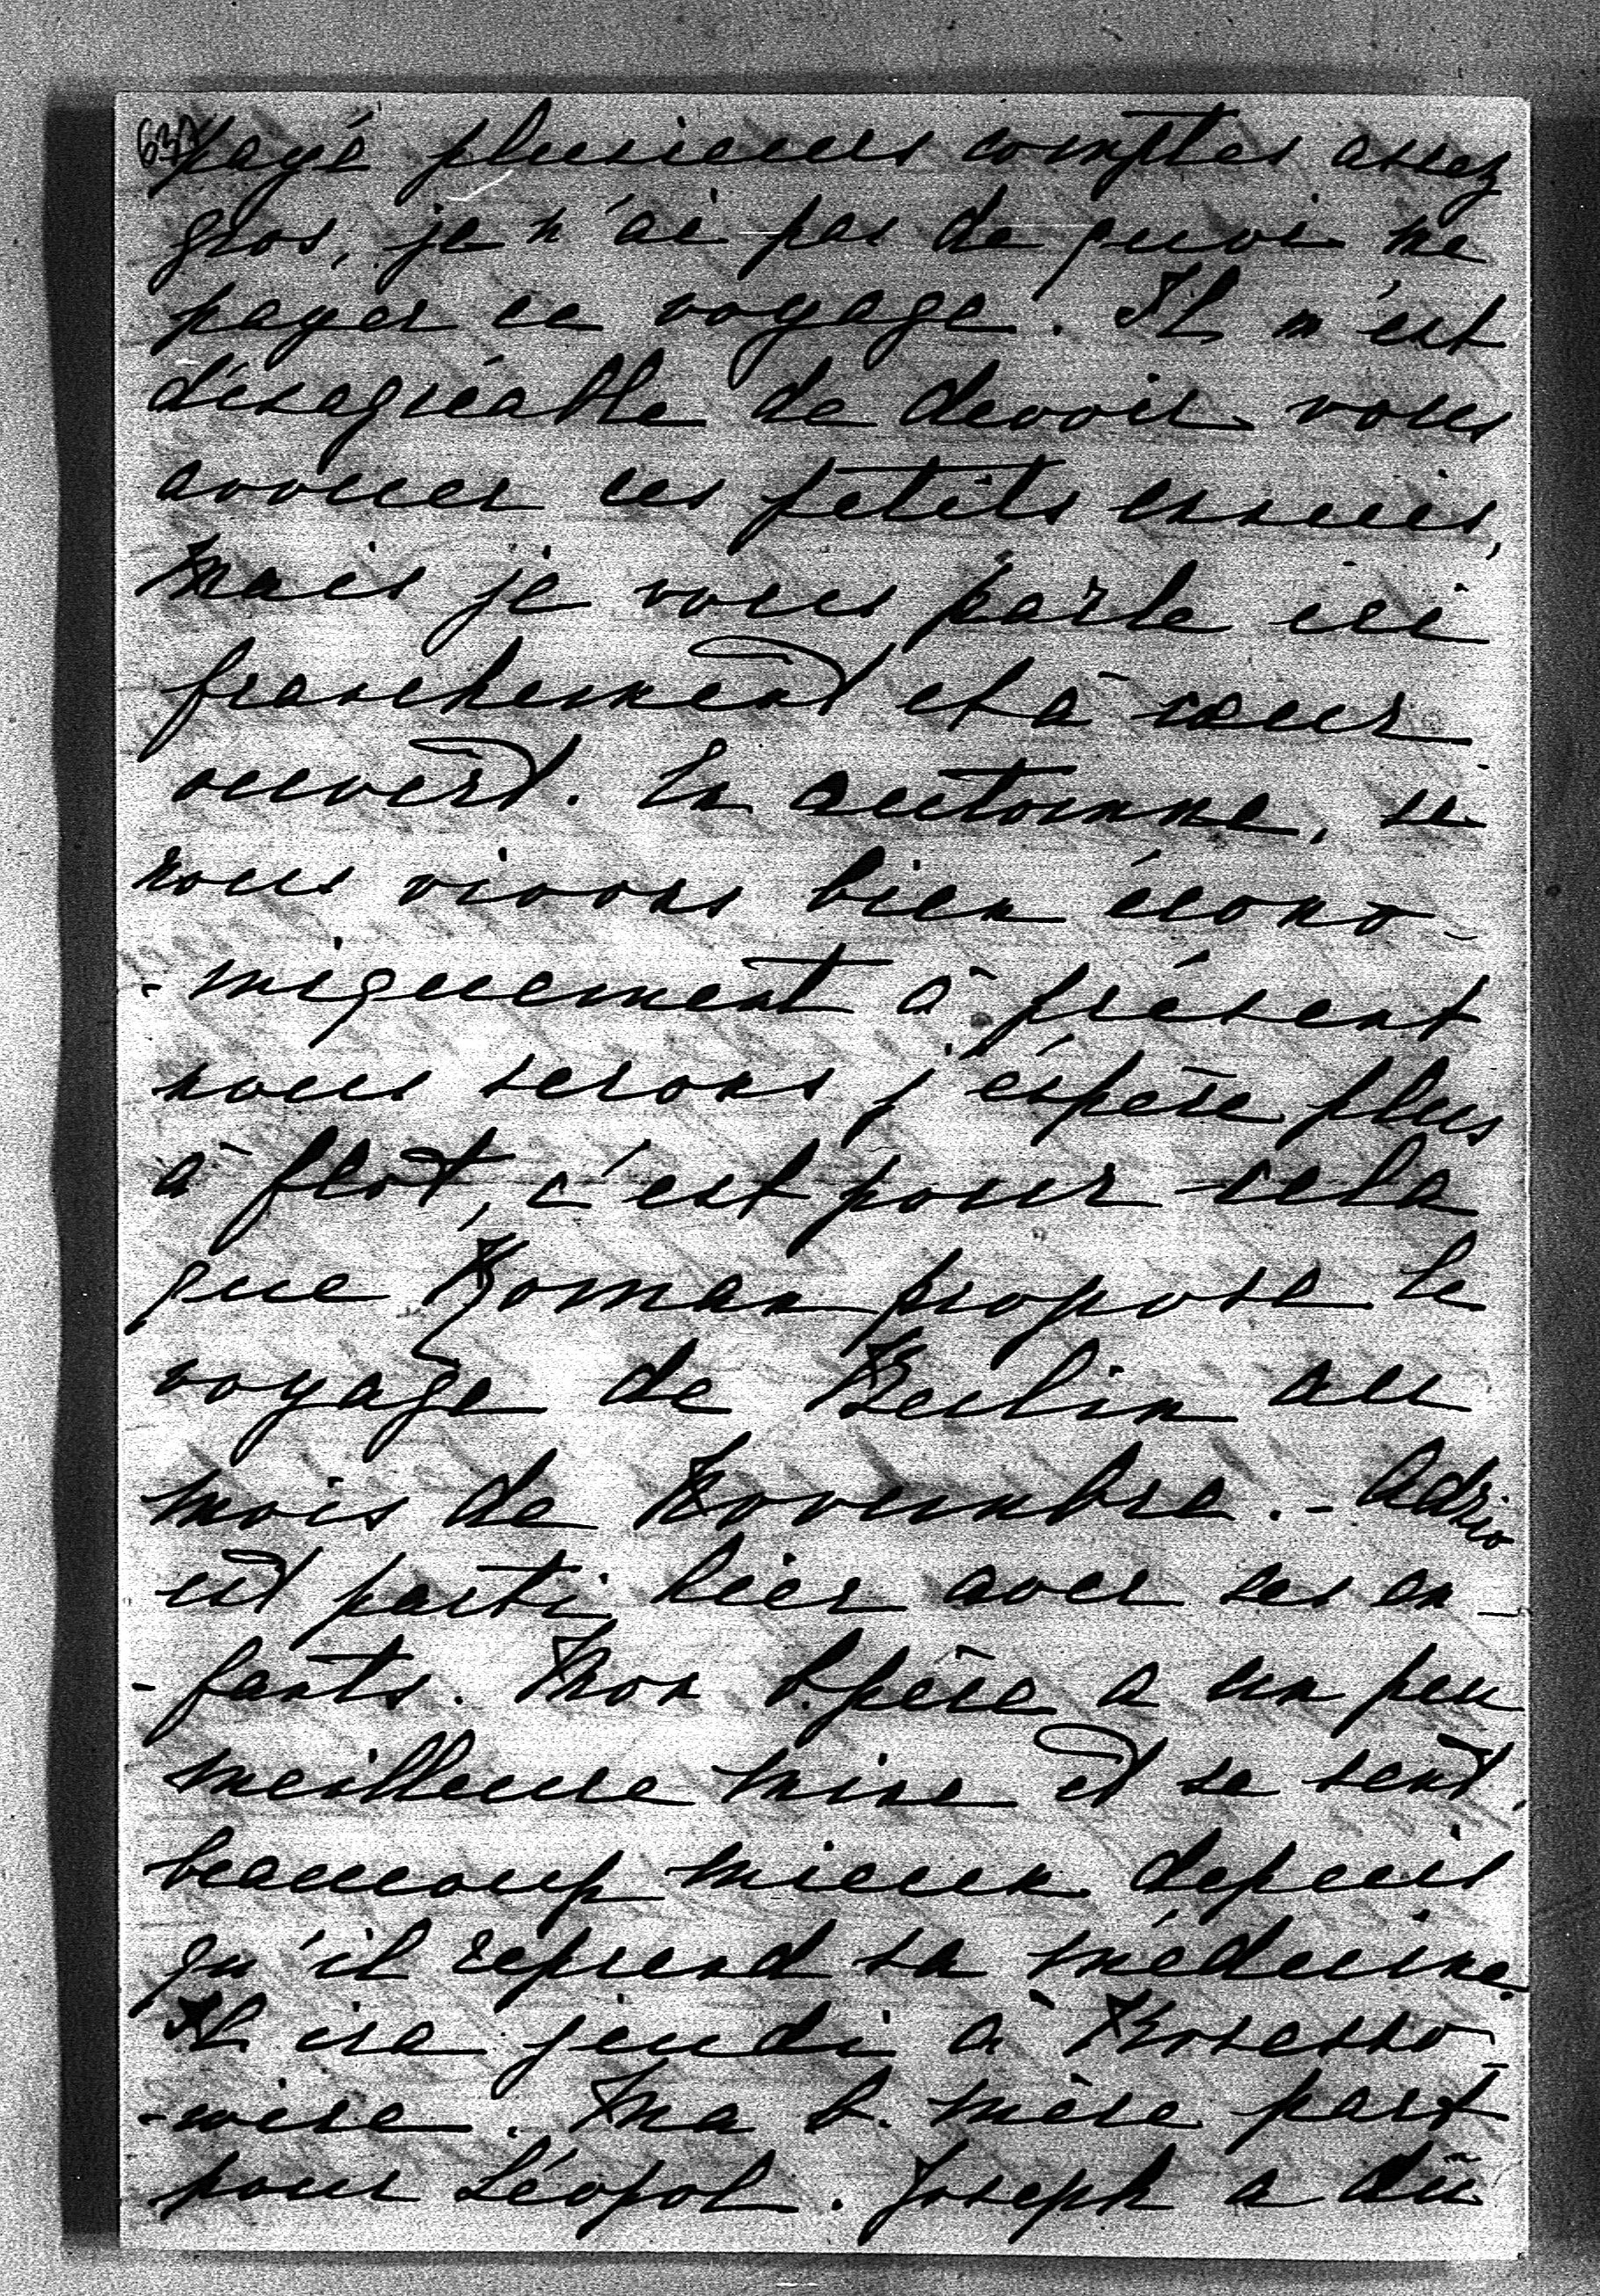 637
payé plusieurs comptes assez
gros, je n'ai pas de quoi me
payer ce voyage. Il m'est
désagréable de devoir vous
avouer ces petits ennuis,
mais je vous parle ici
franchement et à cœur
ouvert. En automne, si
nous vivons bien écono-
-miquement à présent
nous serons j'espère plus
à flot, c'est pour cela
que Roman propose le
voyage de Berlin au
mois de Novembre. - Adzio
est parti hier avec ses en-
-fants. Mon b.père a un peu
meilleure mine et se sent
beaucoup mieux depuis
qu'il reprend sa médecine.
Il ira jeudi à
Ma b. mère part
pour Léopol. Joseph a dû